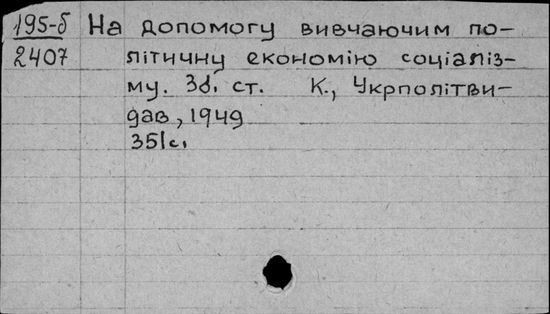 195-б На допомогу вивчаючим по-
2407 літичну економію соціаліз-
му. Зб. ст. К., Укрполітви-
дав, 1949
351с.